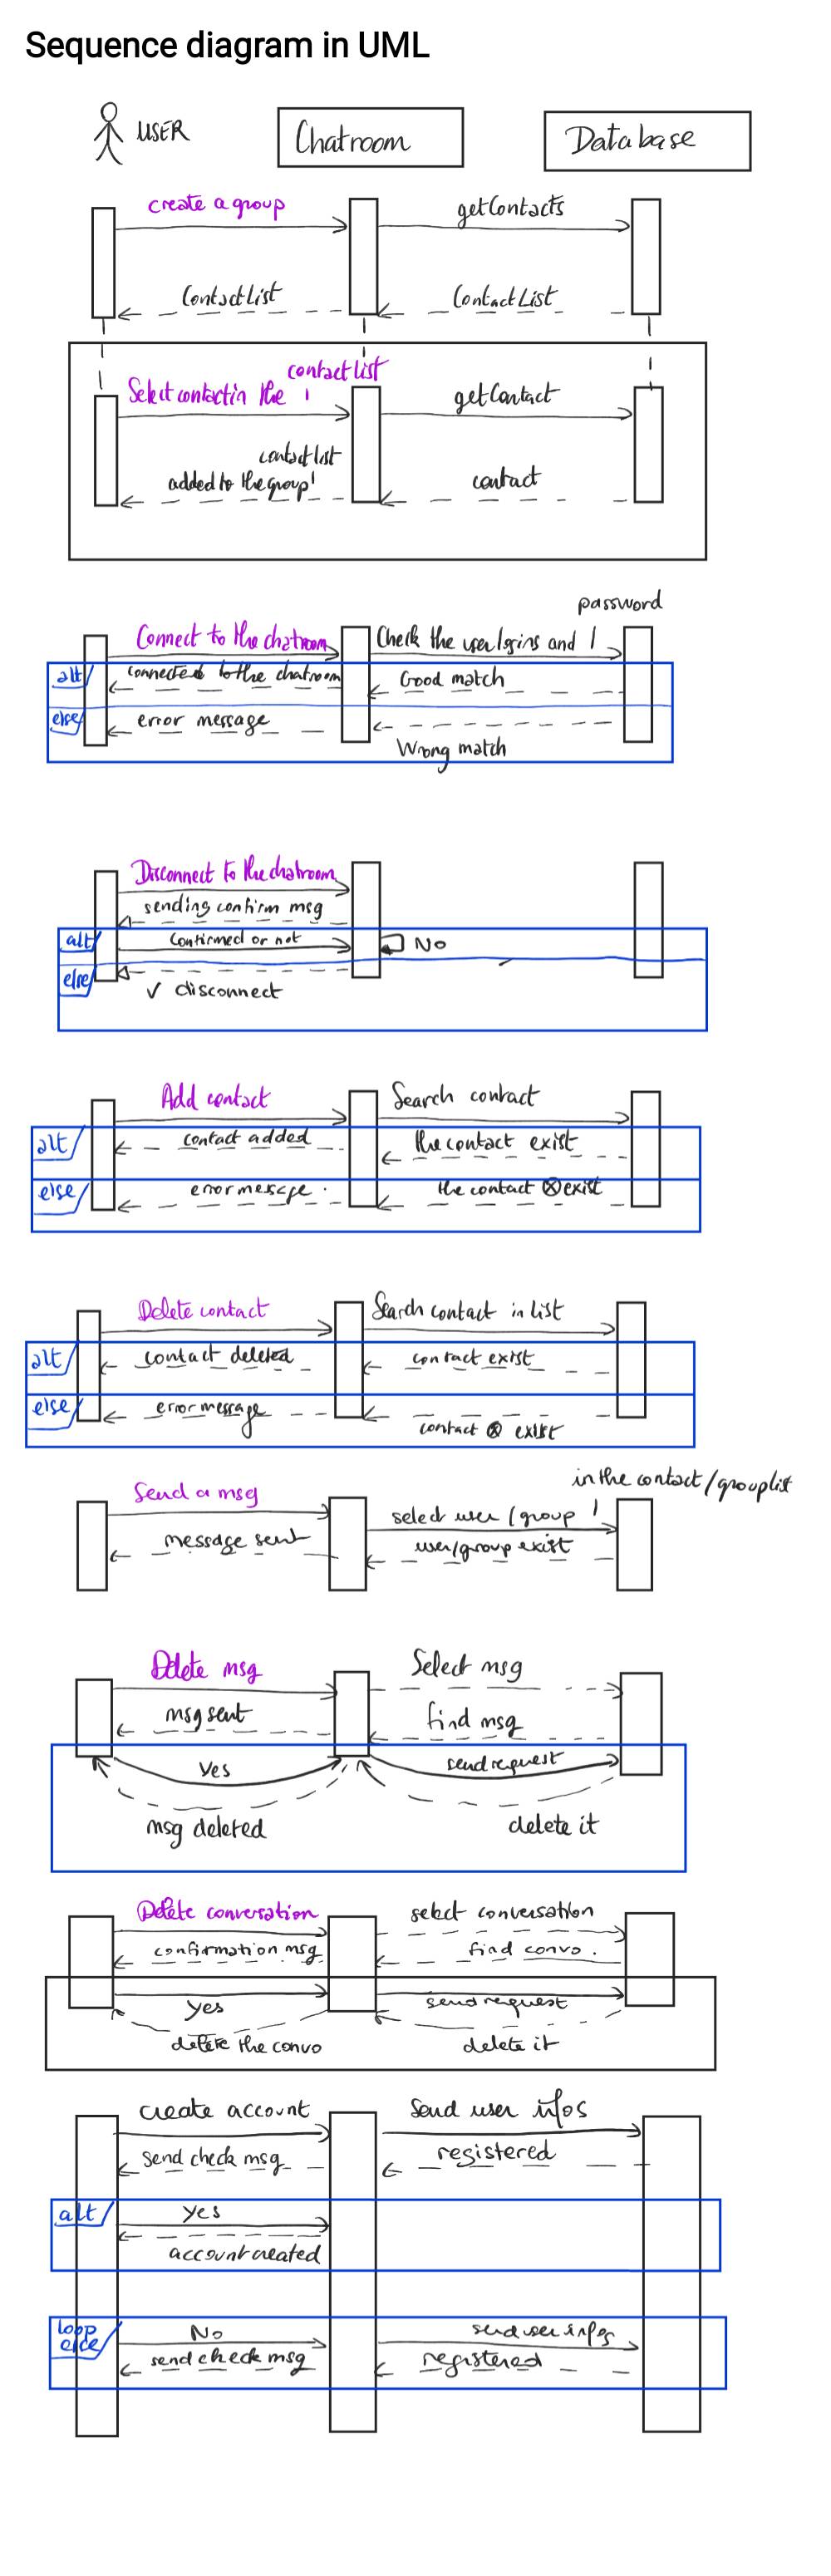 Sequence diagram in UML
USER
Chatroom
Database
create a group
getContacts
ContactList
ContactList
contact list
Select contact in the
getContact
contact list
added to the group
contact
password
Connect to the chatroom
Check the user logins and
alt
connected to the chatroom
Good match
else
error message
Wrong match
Disconnect to the chatroom
sending confirm msg
alt
Confirmed or not
No
else
✓ disconnect
Add contact
Search contact
alt
contact added
the contact exist
else
error message
the contact ⊗ exist
Delete contact
Search contact in list
alt
contact deleted
contact exist
else
error message
contact ⊗ exist
in the contact/grouplist
Send a msg
select user/group
message sent
user/group exist
Delete msg
Select msg
msg sent
find msg
Yes
send request
msg deleted
delete it
Delete conversation
select conversation
confirmation msg
find convo.
yes
send request
delete the convo
delete it
create account
Send user infos
send check msg
registered
alt
yes
account created
loop
else
No
send user infos
send check msg
registered